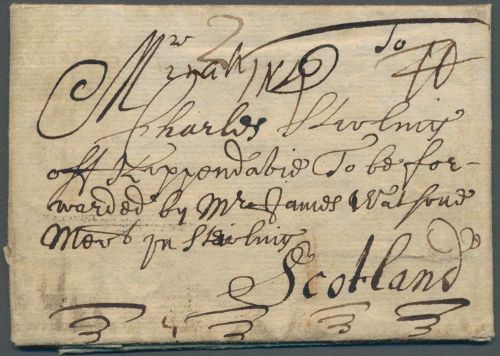 Mr To
Charles Sterling
off Kippendavie To be for-
warded by Mr James Watsone
Mert In Sterling
Scotland